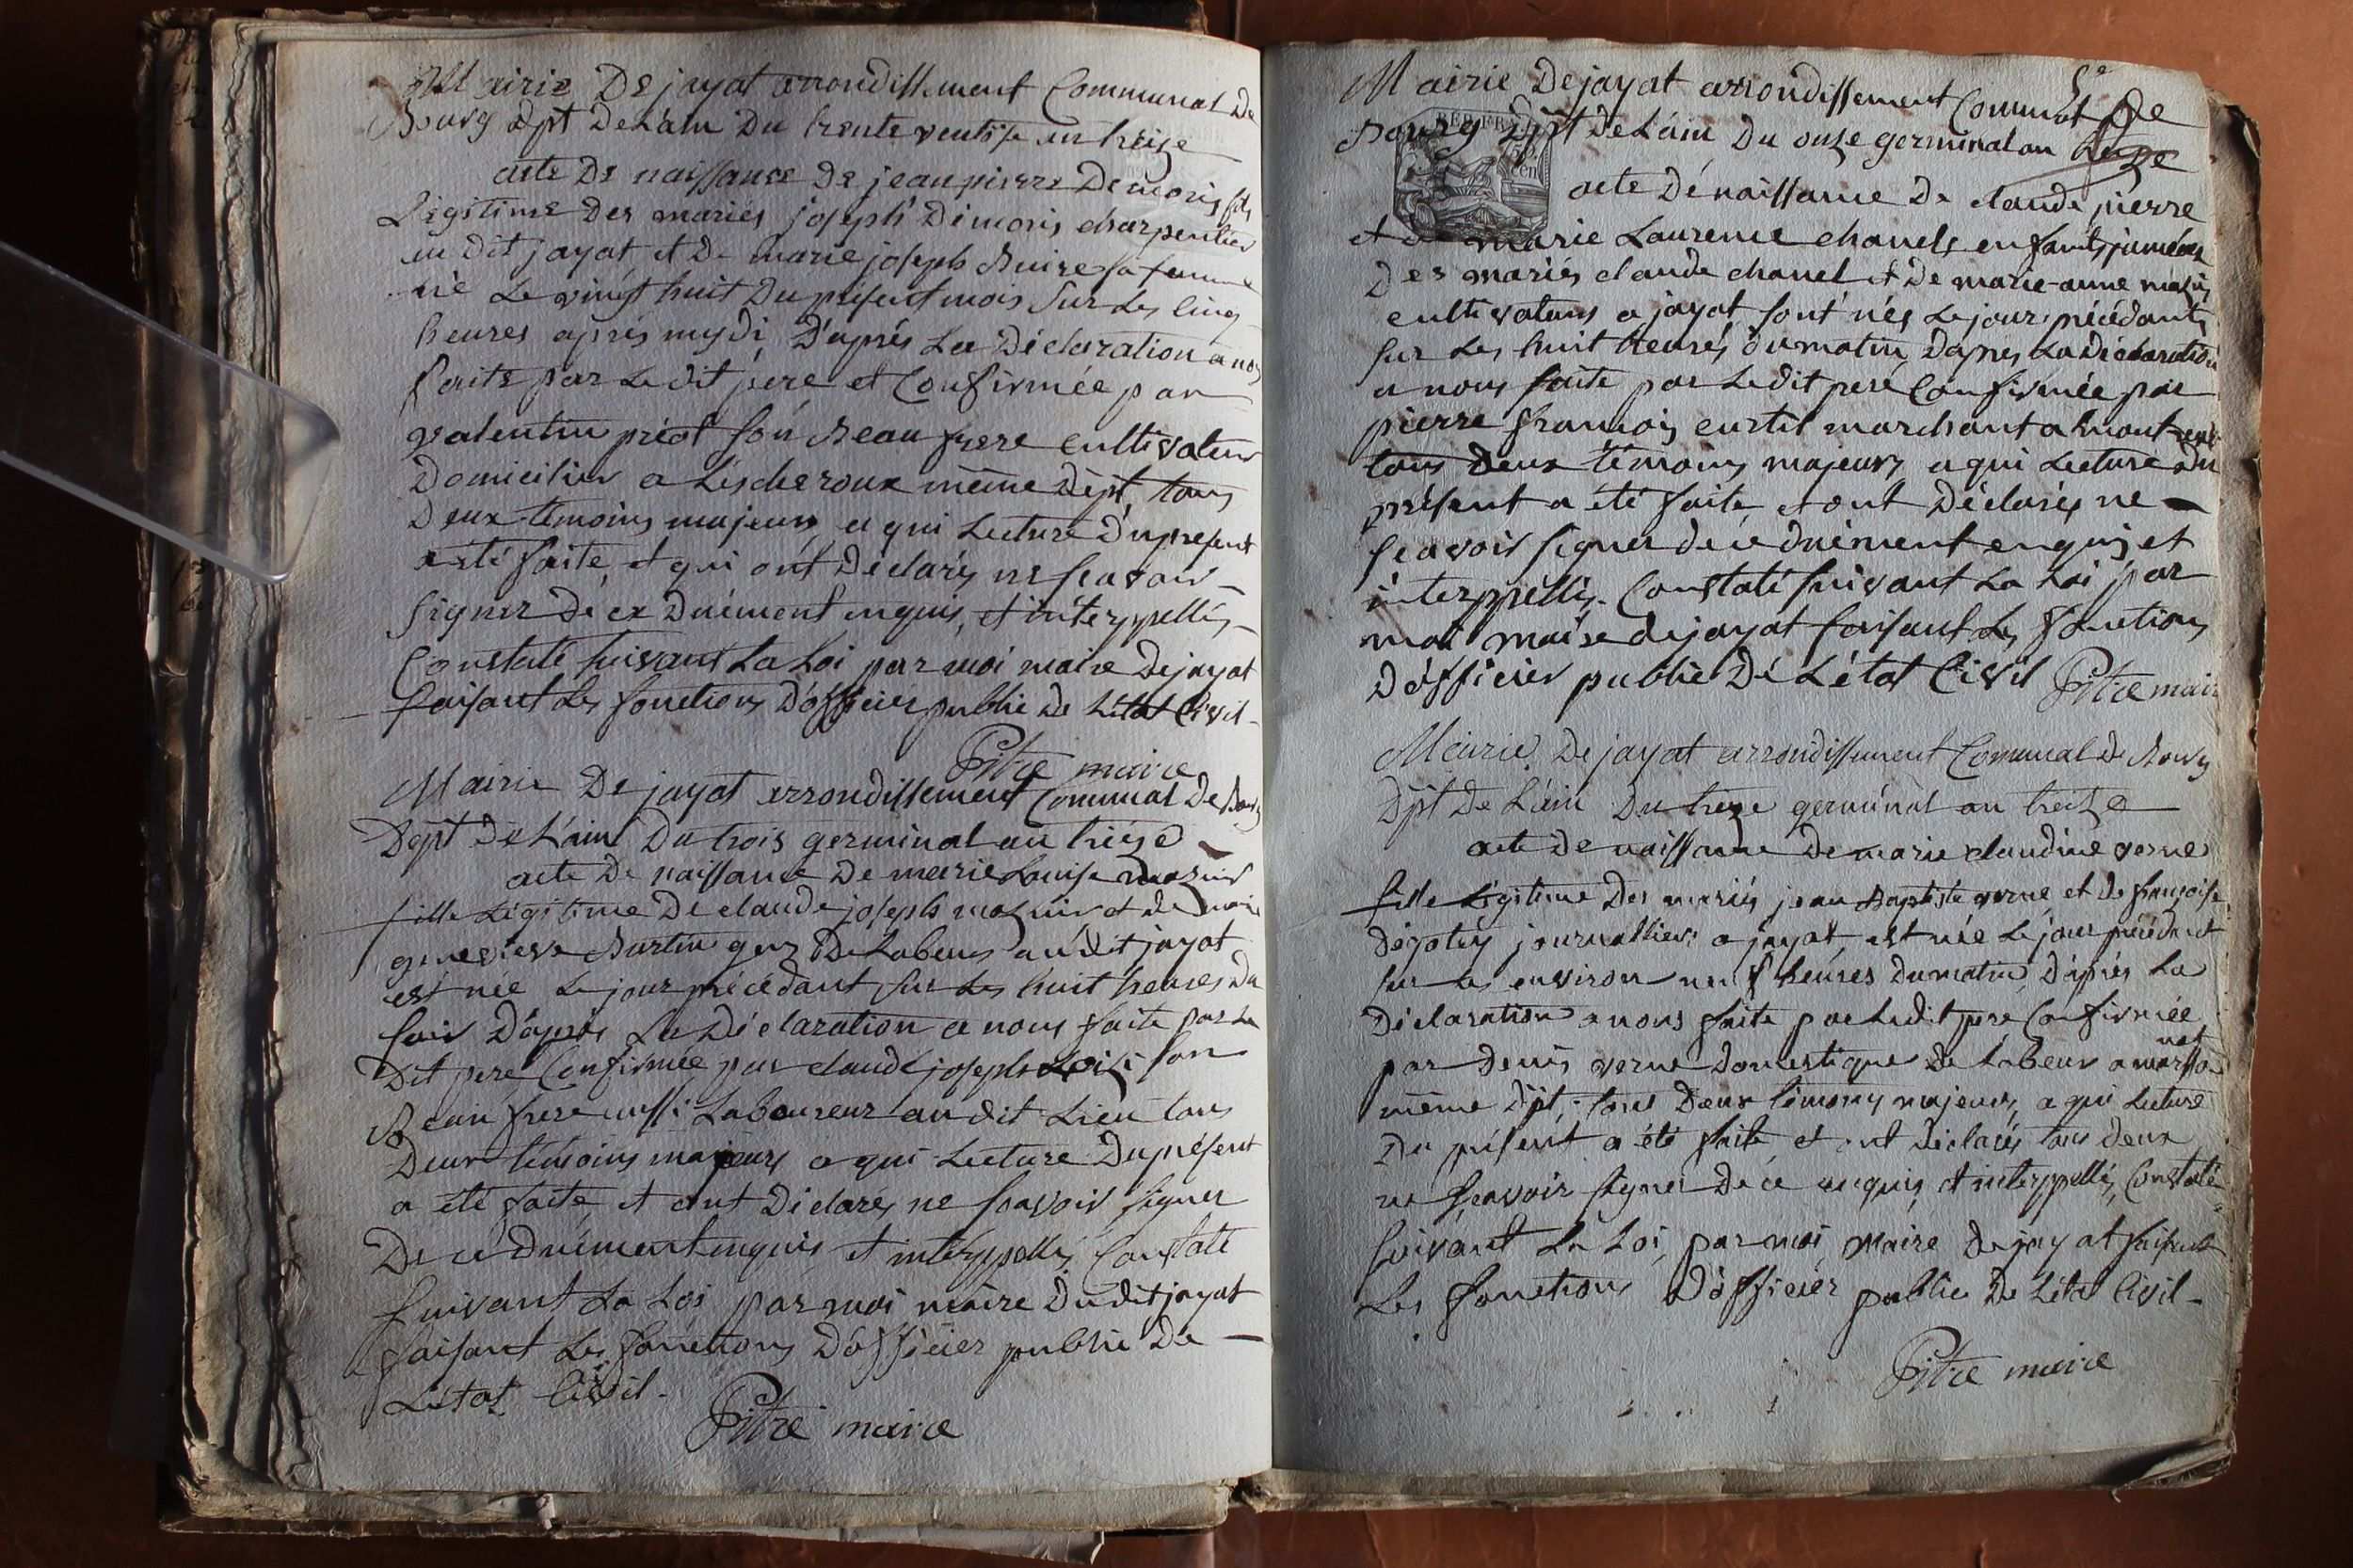 Mairie De jayat arrondissement Communal De
Bourg dpt De L'ain Du trente ventose an treize
acte De naissance De jean pierre Demoris fils
Légitime Des mariés joseph Dimoris charpentier
au Dit jayat et De marie joseph Buire sa femme
né Le vingt huit Du présent mois Sur Les cinq
heures après mydi, D'aprés La Déclaration a nous
faite par Le dit pere et Confirmée par
valentin préat son Beau frere cultivateur
Domicilier a Lescheroux même Dept, tous
Deux témoins majeurs a qui Lecture Du present
a été faite, et qui ont Déclarés ne scavoir
signer De ce Duëment enquis, et interppellés
Constaté suivant La Loi par moi maire De jayat
faisant Les fonctions D'officier public De Létat Civil
Pitre maire
Mairie De jayat arrondissement Communal De Bourg
Dept De L'ain Du trois germinal an treize
acte De naissance De marie Louise mazuir
fille Légitime De claude joseph mazuir et de marie
genevieve Burtin gens De Labeur au dit jayat
est née Le jour précédant sur Les huit heures Du
soir D'aprés La Déclaration a nous faite par Le
Dit pere Confirmée par claude joseph son
Beau frere aussi Laboureur au dit Lieu tous
Deux témoins majeurs a qui Lecture Du présent
a été faite et ont Déclarés ne scavoir signer
De ce Duëment enquis et interppellés, Constaté
suivant La Loi par moi maire Du dit jayat
faisant Les fonctions D'officier public De
Létat Civil.
Pitre maire
Mairie De jayat arrondissement Communal De
Bourg Dpt De L'ain Du onze germinal an treize
acte De naissance De claude pierre
et De marie Laurence chanels enfants juméaux
Des mariés claude chanel et De marie-anne
cultivateurs a jayat sont nés Le jour précédant
sur Les huit heures du matin, D'apres La Déclaration
a nous faite par Le dit pere Confirmée par
pierre françois curtil marchant a
tous Deux témoins majeurs a qui Lecture Du
présent a été faite, et ont Déclarés ne
scavoir signer De ce duëment enquis et
interppellés. Constaté suivant La Loi par
moi maire De jayat faisant Les fonctions
D'officier public De Létat Civil Pitre maire
Mairie De jayat arrondissement Communal De Bourg
Dpt De L'ain Du treze germinal an treize
acte De naissance De marie claudine verne
fille Légitime Des mariés jean Baptiste verne et De françoise
Dégotey journalliers a jayat, est née Le jour précédant
sur Les environ neuf heures du matin, D'aprés La
Déclaration a nous faite par Ledit pere Confirmée
par Denis verne Domestique De Labeur a
même Dpt, tous Deux témoins majeurs, a qui Lecture
Du présent a été faite, et ont Déclarés tous Deux
ne scavoir signer De ce enquis et interppellés, Constaté
suivant La Loi, par moi maire De jayat faisant
Les fonctions D'officier public De Létat Civil
Pitre maire